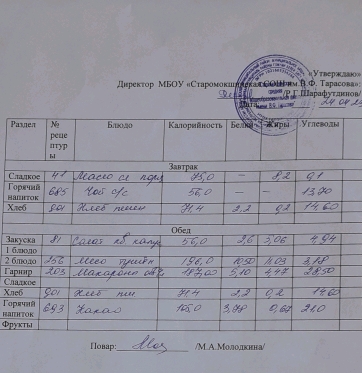 «Утверждаю»
Директор МБОУ «Старомокшинская СОШ им.В.Ф. Тарасова»:
/Р.Г.Шарафутдинов/
Раздел № рецептуры Блюдо Калорийность Белки Жиры Углеводы
Завтрак
Сладкое 41 Масло сл порц 75,0 — 8,2 0,1
Горячий напиток 685 Чай с/с 56,0 — — 13,70
Хлеб 901 Хлеб пшен 71,4 2,2 0,2 14,60
Обед
Закуска 81 Салат кв капус 56,0 2,6 3,06 4,94
1 блюдо
2 блюдо 256 Мясо тушен 196,0 10,50 4,03 3,18
Гарнир 203 Макароны отв 187,00 5,10 4,47 28,50
Сладкое
Хлеб 901 Хлеб пш 71,4 2,2 0,2 14,60
Горячий напиток 693 Какао 105,0 3,78 0,67 21,0
Фрукты
Повар: /М.А.Молодкина/